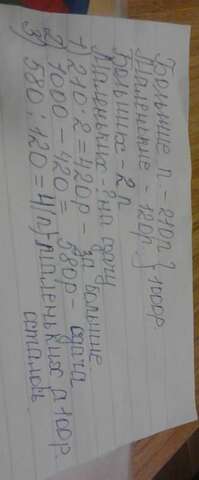 Большие п - 210р } 1000р.
Маленькие - 120р.
Больших - 2 п
Маленьких - ? на сдачу
1) 210·2=420р - за большие.
2) 1000 - 420 = 580р - сдача
3) 580 : 120 = 4(п) маленьких и 100р.
осталось